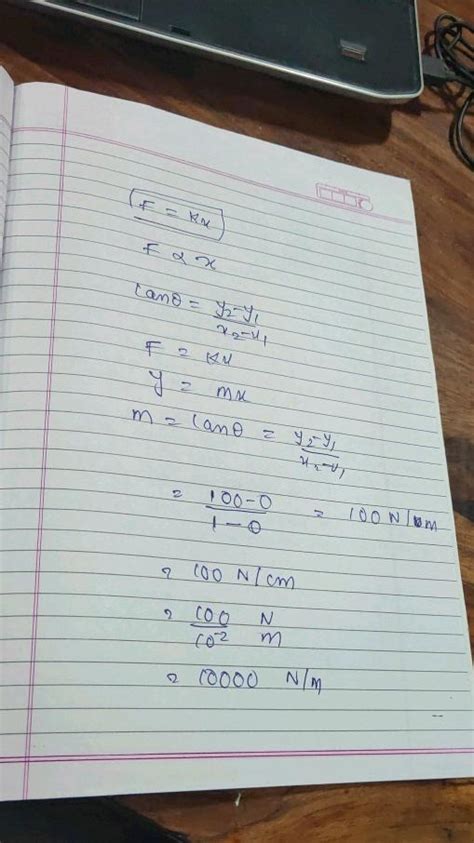 F = Kx
F α x
tanθ = y₂-y₁ / x₂-x₁
F = Kx
y = mx
m = tanθ = y₂-y₁ / x₂-x₁
= 100-0 / 1-0 = 100 N/cm
= 100 N/cm
= 100 / 10⁻² N / m
= 10000 N/m